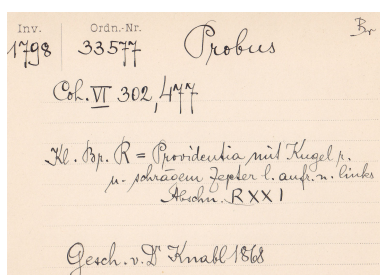 Inv. Ordn.-Nr. Br
1798 33577 Probus
Coh. VI 302, 477
Kl. Br. R = Providentia mit Kugel r.
u. schrägem Zepter l. aufr. n. links
Abschn. RXXI
Gesch. v. Dr Knabl 1868